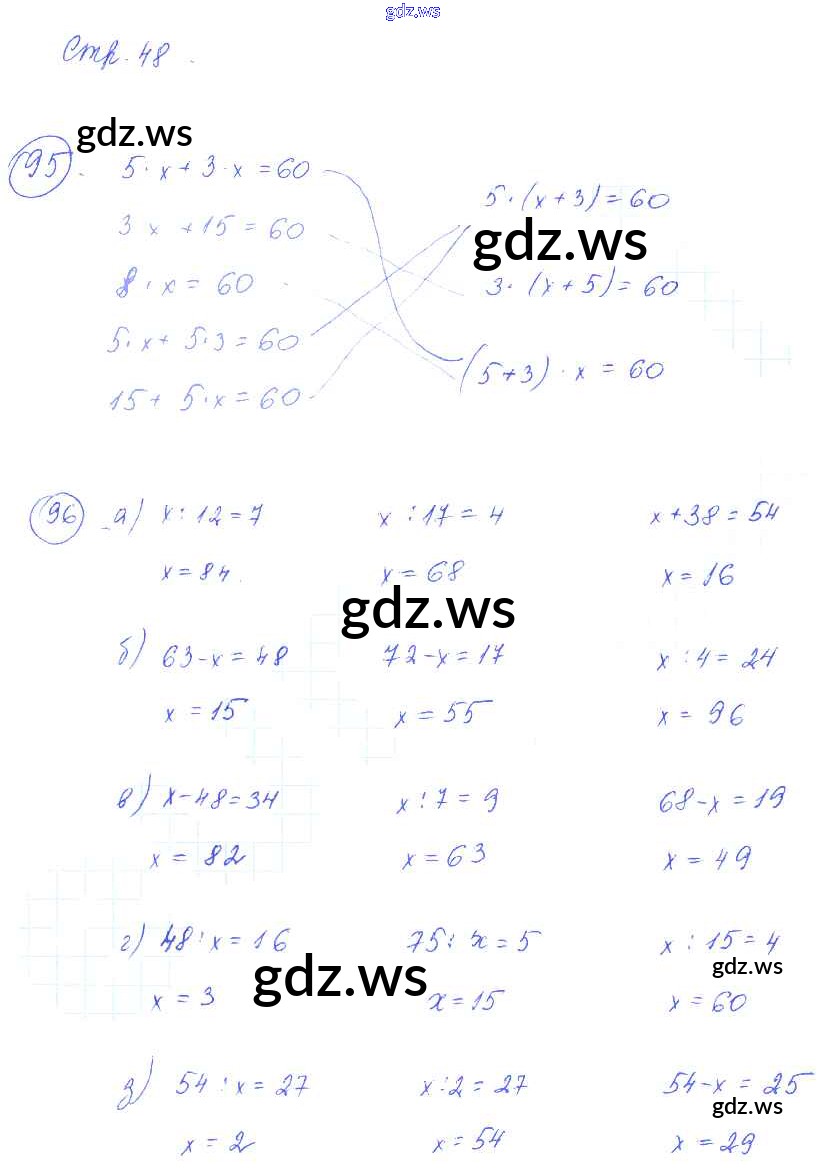 gdz.ws
Стр. 48.
gdz.ws
95. 5·x+3·x=60
5·(x+3)=60
3x+15=60
gdz.ws
8·x=60
3·(x+5)=60
5·x+5·3=60
(5+3)·x=60
15+5·x=60
96 а) x:12=7 x:17=4 x+38=54
x=84. x=68 x=16
gdz.ws
б) 63-x=48 72-x=17 x:4=24
x=15 x=55 x=96
в) x-48=34 x:7=9 68-x=19
x=82 x=63 x=49
г) 48:x=16 75:x=5 x:15=4
gdz.ws
gdz.ws
x=3 x=15 x=60
д) 54:x=27 x:2=27 54-x=25
gdz.ws
x=2 x=54 x=29